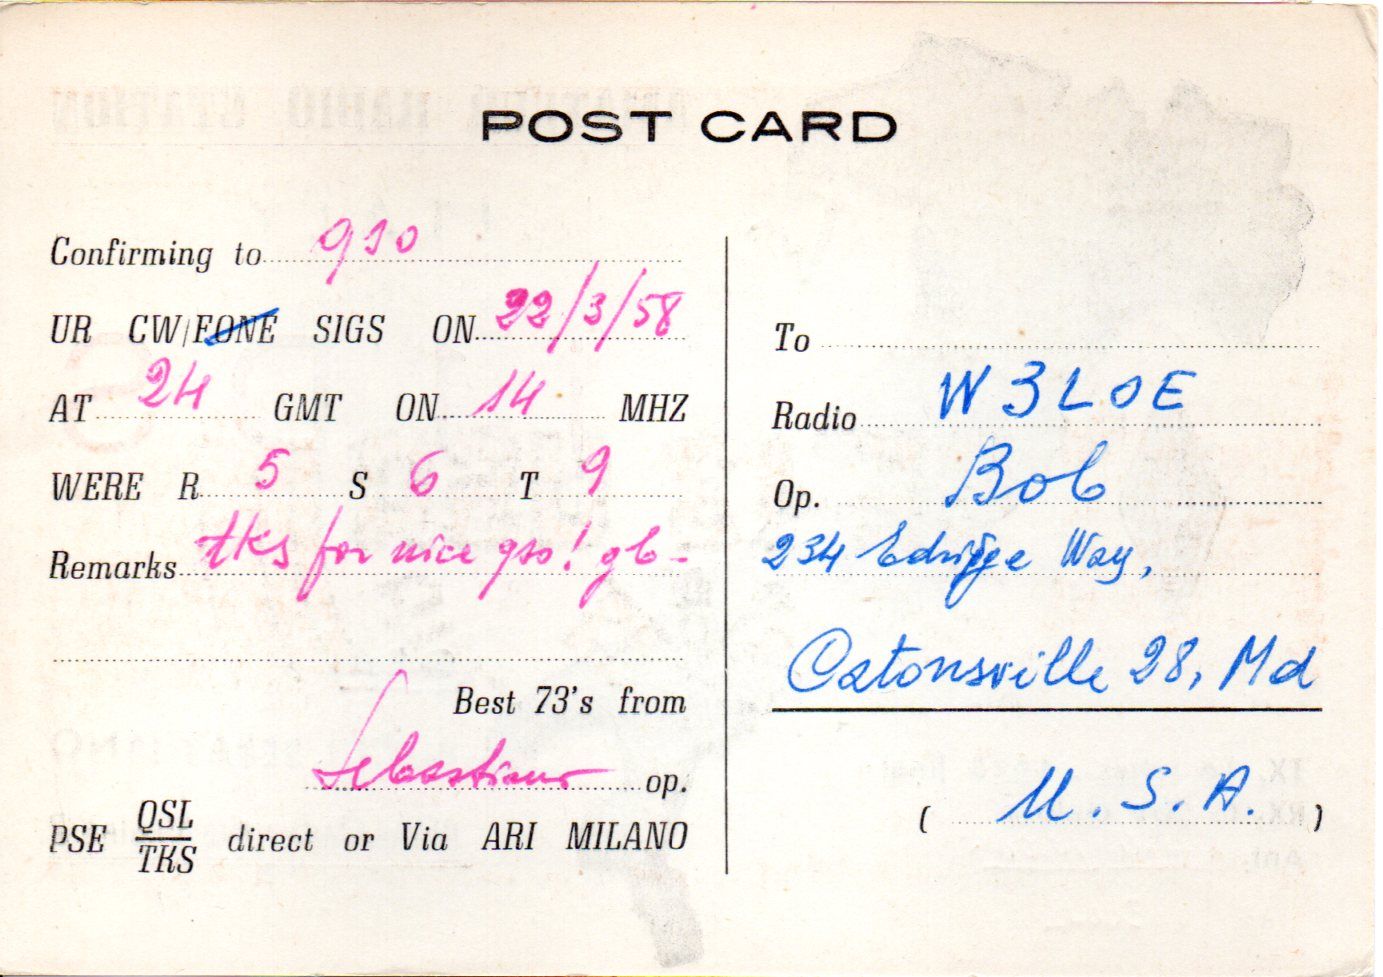 POST CARD
Confirming to qso
UR CW/FONE SIGS ON 22/3/58
AT 24 GMT ON 14 MHZ
WERE R 5 S 6 T 9
Remarks tks for nice qso! gb -
Best 73's from
Sebastiano op.
PSE QSL/TKS direct or Via ARI MILANO
To
Radio W3LOE
Op. Bob
234 Way,
Catonsville 28, Md
( U.S.A. )